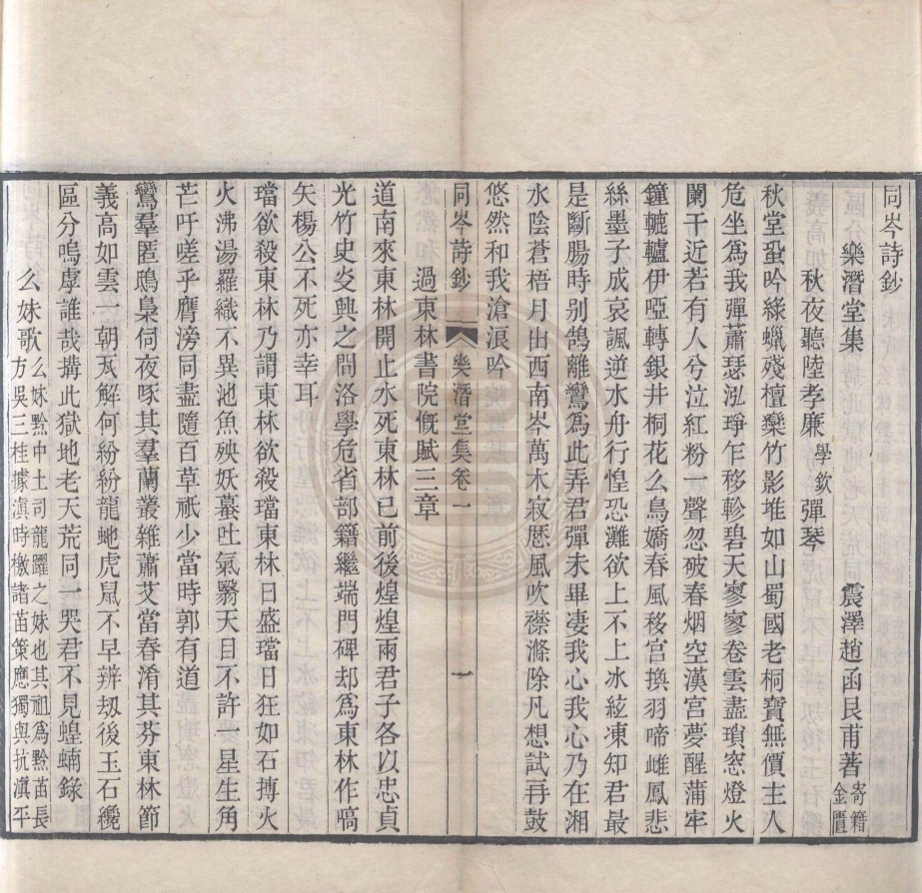 同岑詩鈔
樂潛堂集
震澤趙函艮甫著寄籍金匱
秋夜聽陸孝廉學欽彈琴
秋堂蛩吟綠蠟殘檀欒竹影堆如山蜀國老桐寶無價主人
危坐爲我彈蕭瑟泓琤乍移軫碧天寥寥卷雲盡瑣窓燈火
闌干近若有人兮泣紅粉一聲忽破春烟空漢宮夢醒蒲牢
鐘轆轤伊啞轉銀井桐花么鳥嬌春風移宮換羽啼雌鳳悲
絲墨子成哀諷逆水舟行惶恐灘欲上不上冰絃凍知君最
是斷腸時別鵠離鸞爲此弄君彈未畢凄我心我心乃在湘
水陰蒼梧月出西南岑萬木寂厯風吹襟滌除凡想試再鼓
悠然和我滄浪吟
同岑詩鈔
樂潛堂集卷一
一
過東林書院慨賦三章
道南來東林開止水死東林已前後煌煌兩君子各以忠貞
光竹史炎興之間洛學危省部籍繼端門碑却爲東林作嚆
矢楊公不死亦幸耳
璫欲殺東林乃謂東林欲殺璫東林日盛璫日狂如石搏火
火沸湯羅織不異池魚殃妖蟇吐氣翳天日不許一星生角
芒吁嗟乎膺滂同盡隨百草祇少當時郭有道
鸞羣匿鴟梟伺夜啄其羣蘭叢雜蕭艾當春淆其芬東林節
義高如雲一朝瓦解何紛紛龍虵虎鼠不早辨刼後玉石纔
區分嗚虖誰哉搆此獄地老天荒同一哭君不見蝗蝻錄
么妹歌么妹黔中土司龍躍之妹也其祖爲黔苗長
方吳三桂據滇時檄諸苗策應獨與抗滇平